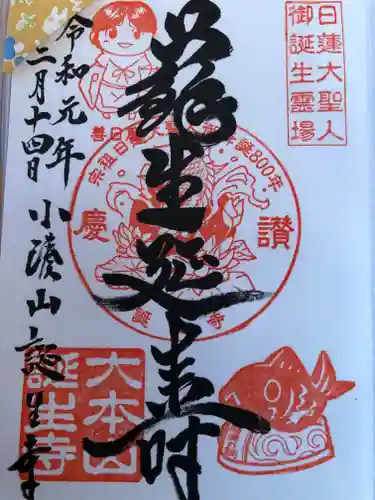 日蓮大聖人
御誕生霊場
蘓生延壽
令和元年
二月十四日
小湊山 誕生寺
善日
宗祖日蓮大聖 降誕800年
慶讃
誕 寺
大本山
誕生寺